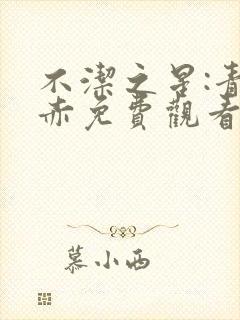 不潔之星:青
赤免費觀看
慕小西